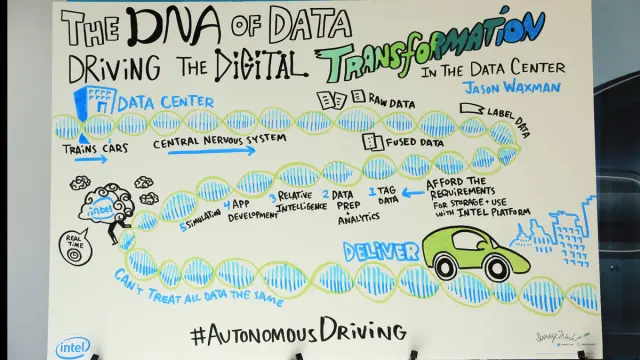 THE DNA OF DATA
DRIVING THE DIGITAL TRANSFORMATION IN THE DATA CENTER
JASON WAXMAN
DATA CENTER
RAW DATA
LABEL DATA
TRAINS CARS
CENTRAL NERVOUS SYSTEM
FUSED DATA
AFFORD THE
REQUIREMENTS
FOR STORAGE + USE
WITH INTEL PLATFORM
1 TAG
DATA
2 DATA
PREP
+
ANALYTICS
3 RELATIVE
INTELLIGENCE
4 APP
DEVELOPMENT
5 SIMULATION
intel
REAL
TIME
DELIVER
CAN'T TREAT ALL DATA THE SAME
#AUTONOMOUSDRIVING
intel